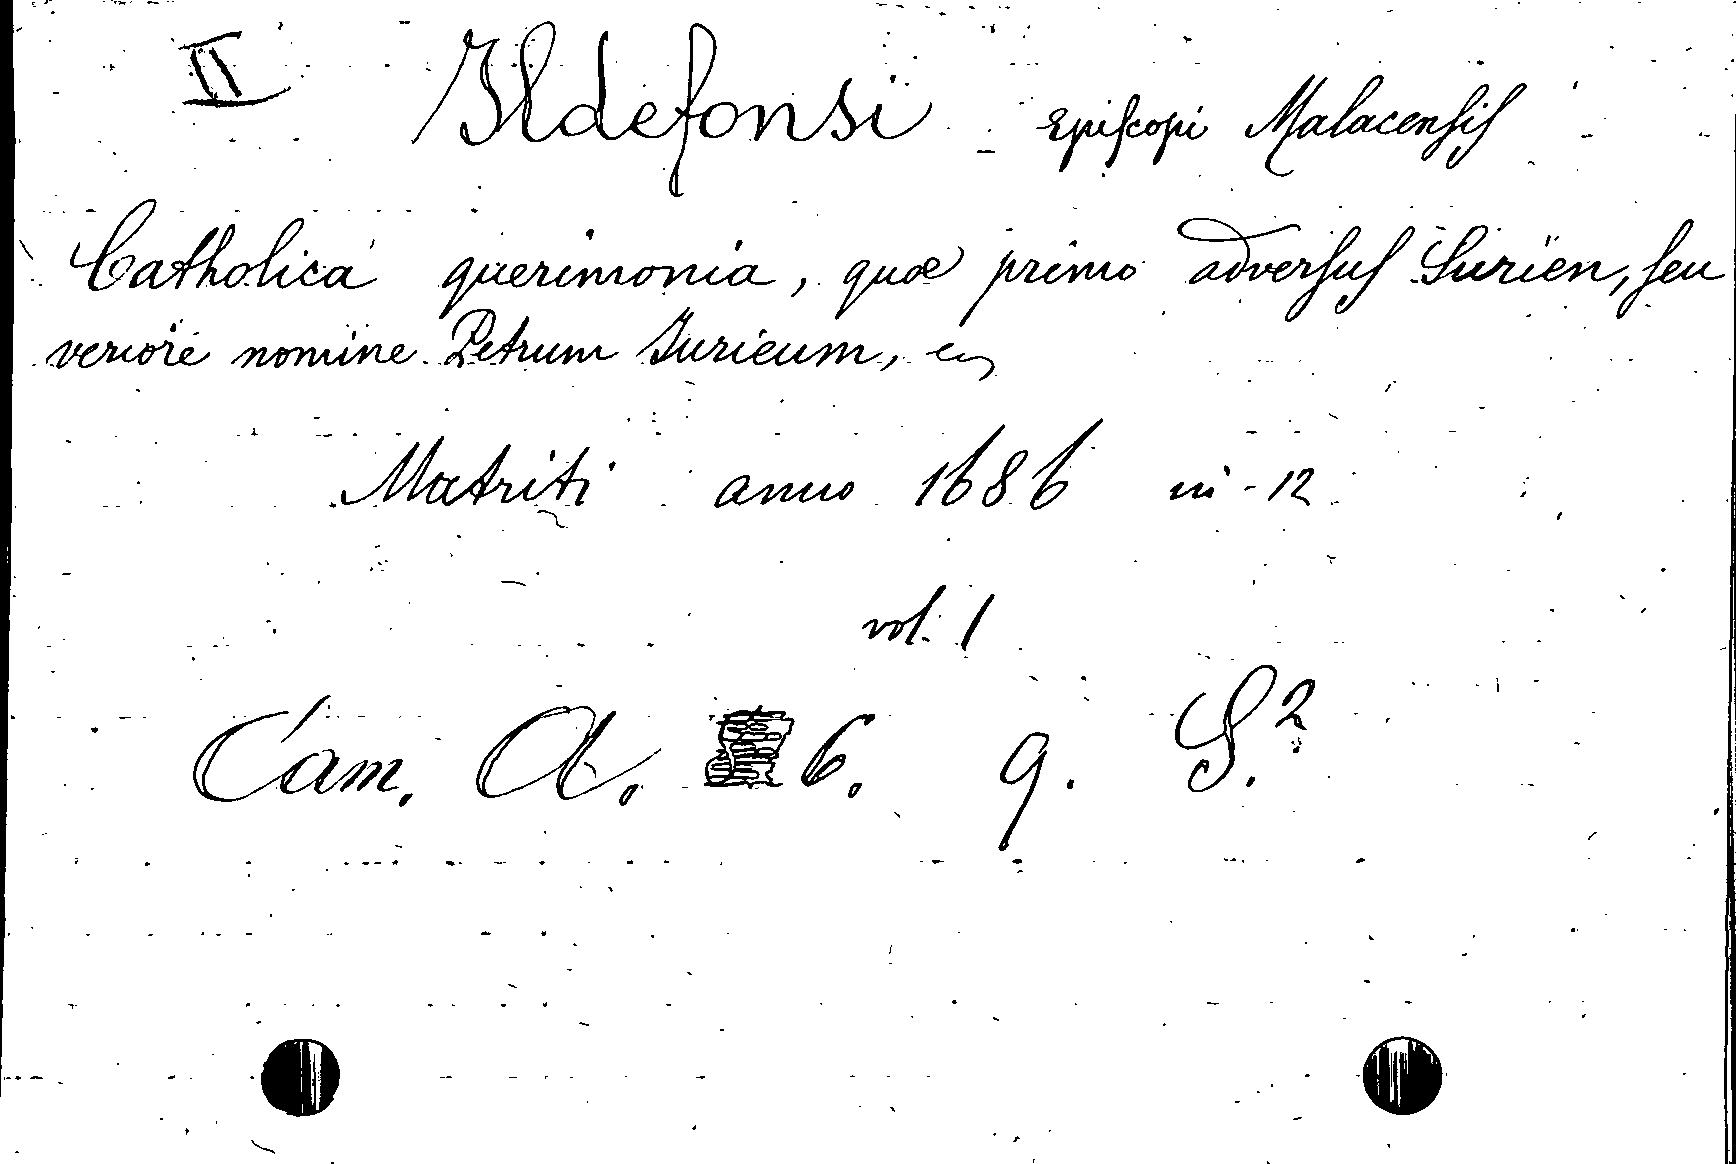 II Ildefonsi Episcopi Malacensis
Catholica querimonia, quæ primo adversus Surien, seu
veriore nomine Petrum Jurieum,
Matriti anno 1686 in-12
vol. 1
Cam. A. 6. 9. S.2